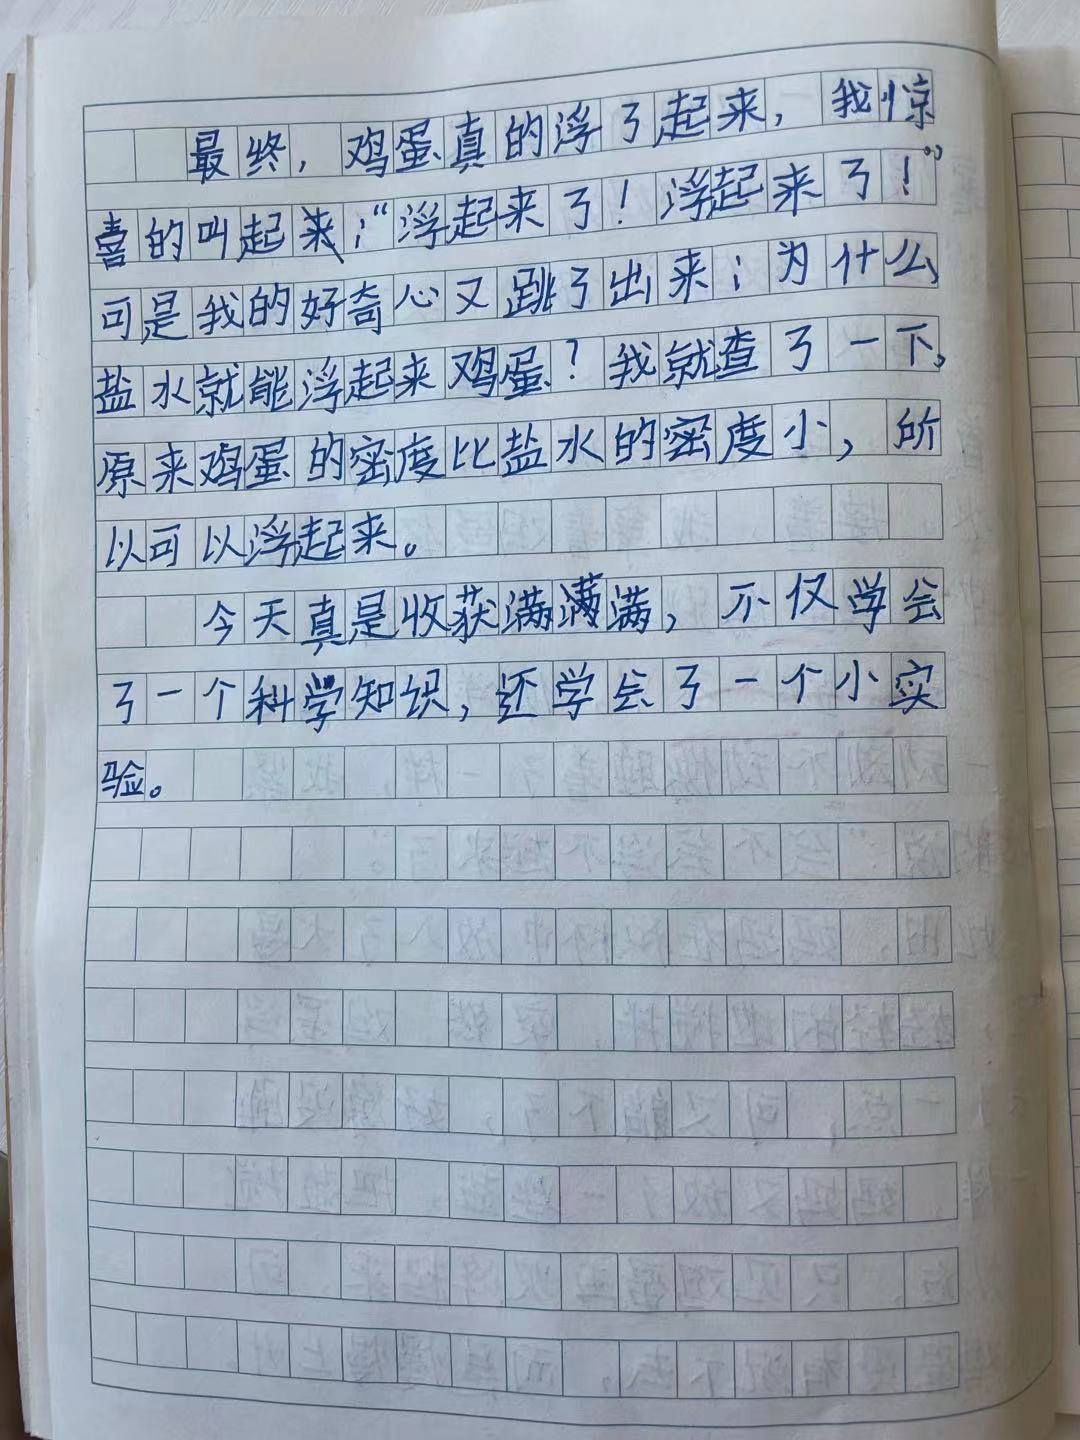 最终，鸡蛋真的浮了起来，我惊
喜的叫起来：“浮起来了！浮起来了！”
可是我的好奇心又跳了出来：为什么
盐水就能浮起来鸡蛋？我就查了一下，
原来鸡蛋的密度比盐水的密度小，所
以可以浮起来。
今天真是收获满满满，不仅学会
了一个科学知识，还学会了一个小实
验。